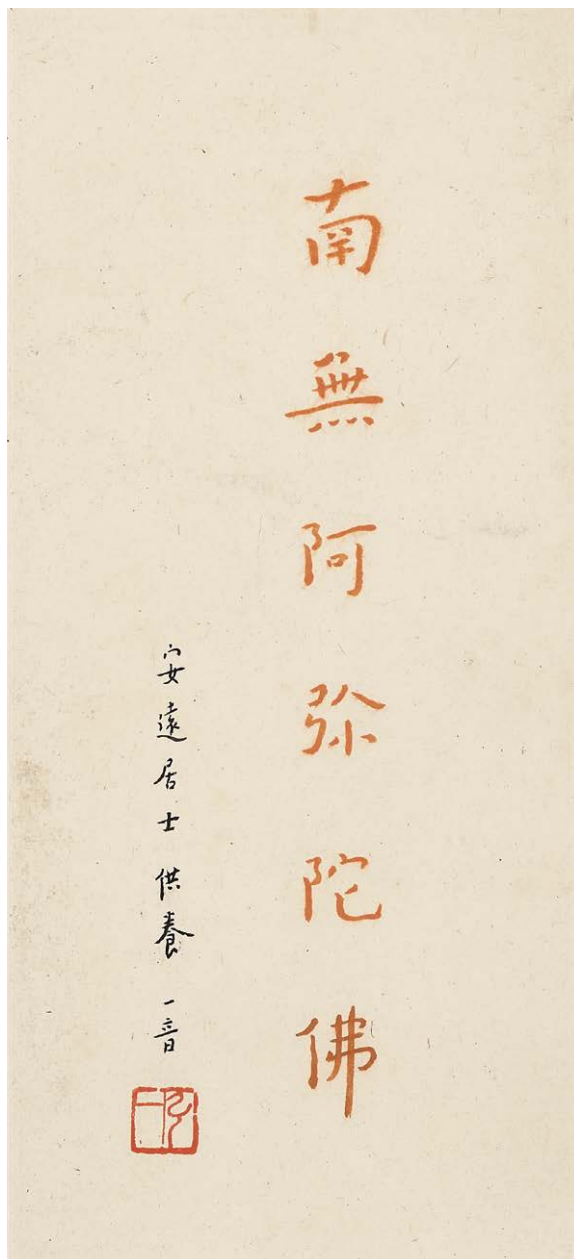 南無阿弥陀佛
安遠居士供養 一音